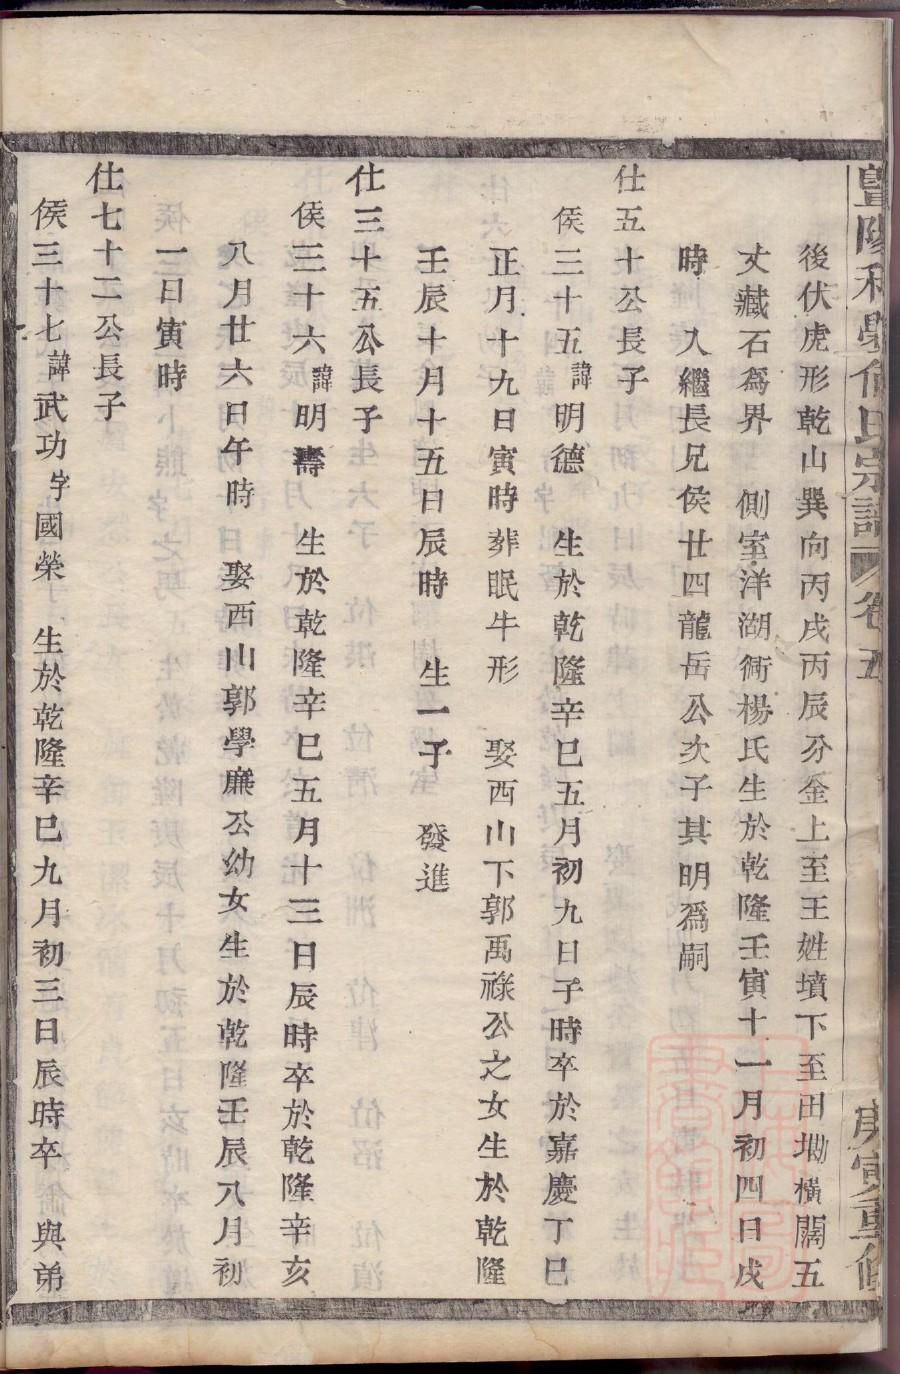 暨陽 何氏宗譜 卷五 庚寅重修
後伏虎形乾山巽向丙戌丙辰分金上至王姓墳下至田墈橫闊五
丈藏石爲界 側室洋湖衕楊氏生於乾隆壬寅十一月初四日戌
時 入繼長兄侯廿四龍岳公次子其明爲嗣
仕五十公長子
侯三十五諱明德 生於乾隆辛巳五月初九日子時卒於嘉慶丁巳
正月十九日寅時葬眠牛形 娶西山下郭禹祿公之女生於乾隆
壬辰十月十五日辰時 生一子 發進
仕三十五公長子
侯三十六諱明壽 生於乾隆辛巳五月十三日辰時卒於乾隆辛亥
八月廿六日午時 娶西山郭學廉公幼女生於乾隆壬辰八月初
一日寅時
仕七十二公長子
侯三十七諱武功字國榮 生於乾隆辛巳九月初三日辰時卒 與弟